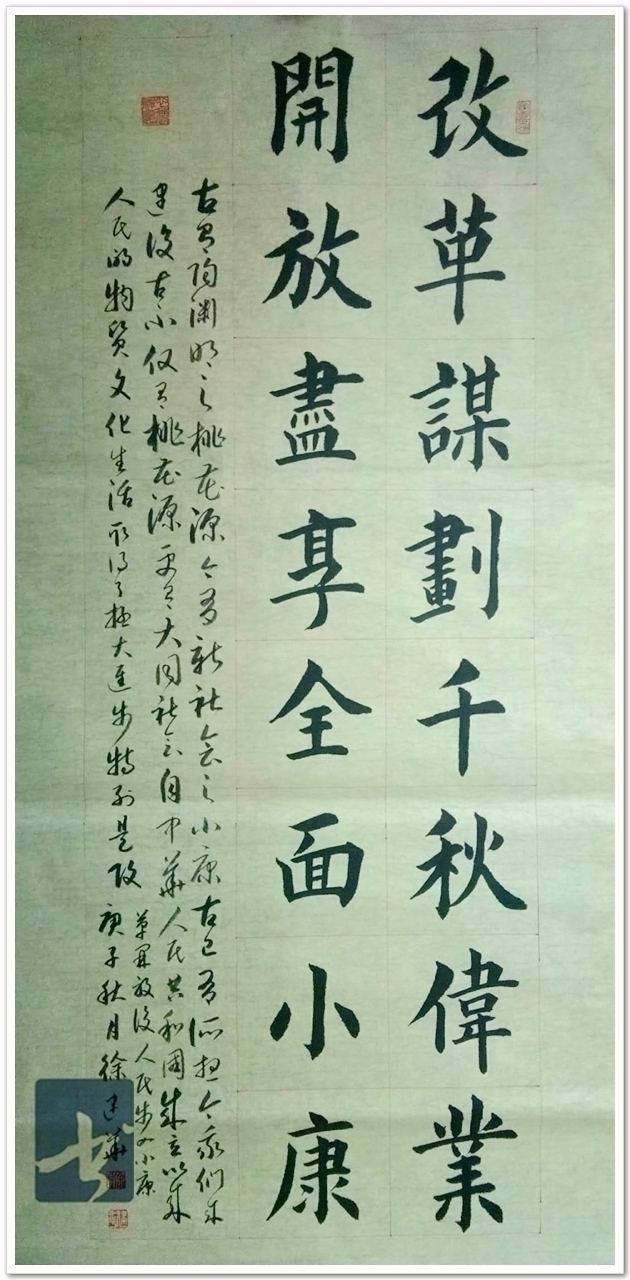 改革謀劃千秋偉業
開放盡享全面小康
古有陶渊明之桃花源今有新社会之小康古已有所想今我们才
建设古不仅有桃花源更有大同社会自中華人民共和國成立以来
人民的物質文化生活取得了极大進步特别是改
革開放後人民步入小康
庚子秋月徐建華